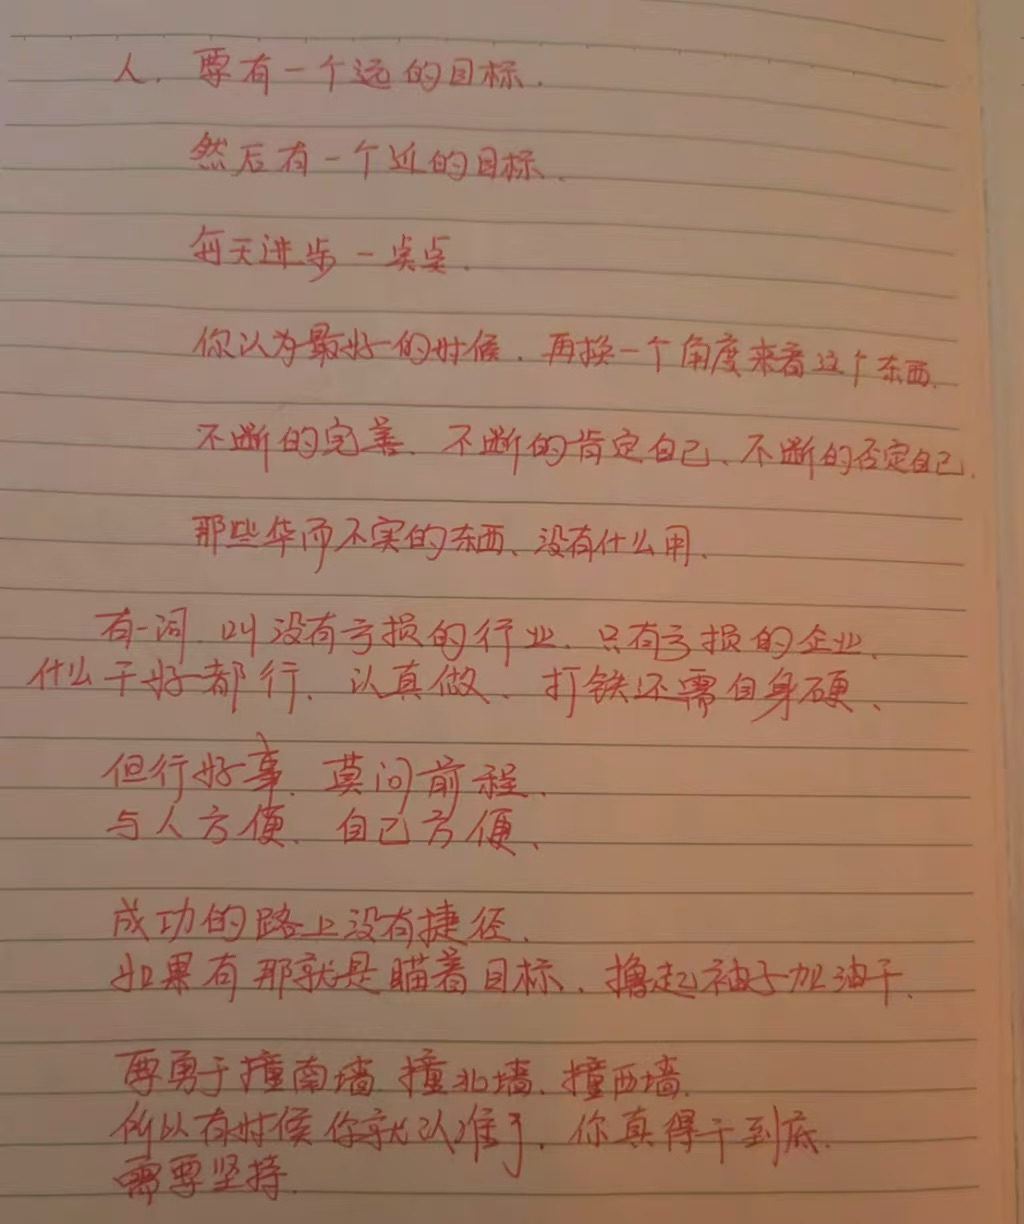 人.要有一个远的目标.
然后有一个近的目标.
每天进步一点点.
你认为最好的时候.再换一个角度来看这个东西.
不断的完善、不断的肯定自己、不断的否定自己.
那些华而不实的东西、没有什么用.
有一词.叫没有亏损的行业、只有亏损的企业、
什么干好都行、认真做、打铁还需自身硬、
但行好事.莫问前程.
与人方便.自己方便、
成功的路上没有捷径.
如果有那就是瞄着目标、撸起袖子加油干.
要勇于撞南墙.撞北墙.撞西墙.
所以有时候你就认准了.你真得干到底.
需要坚持.